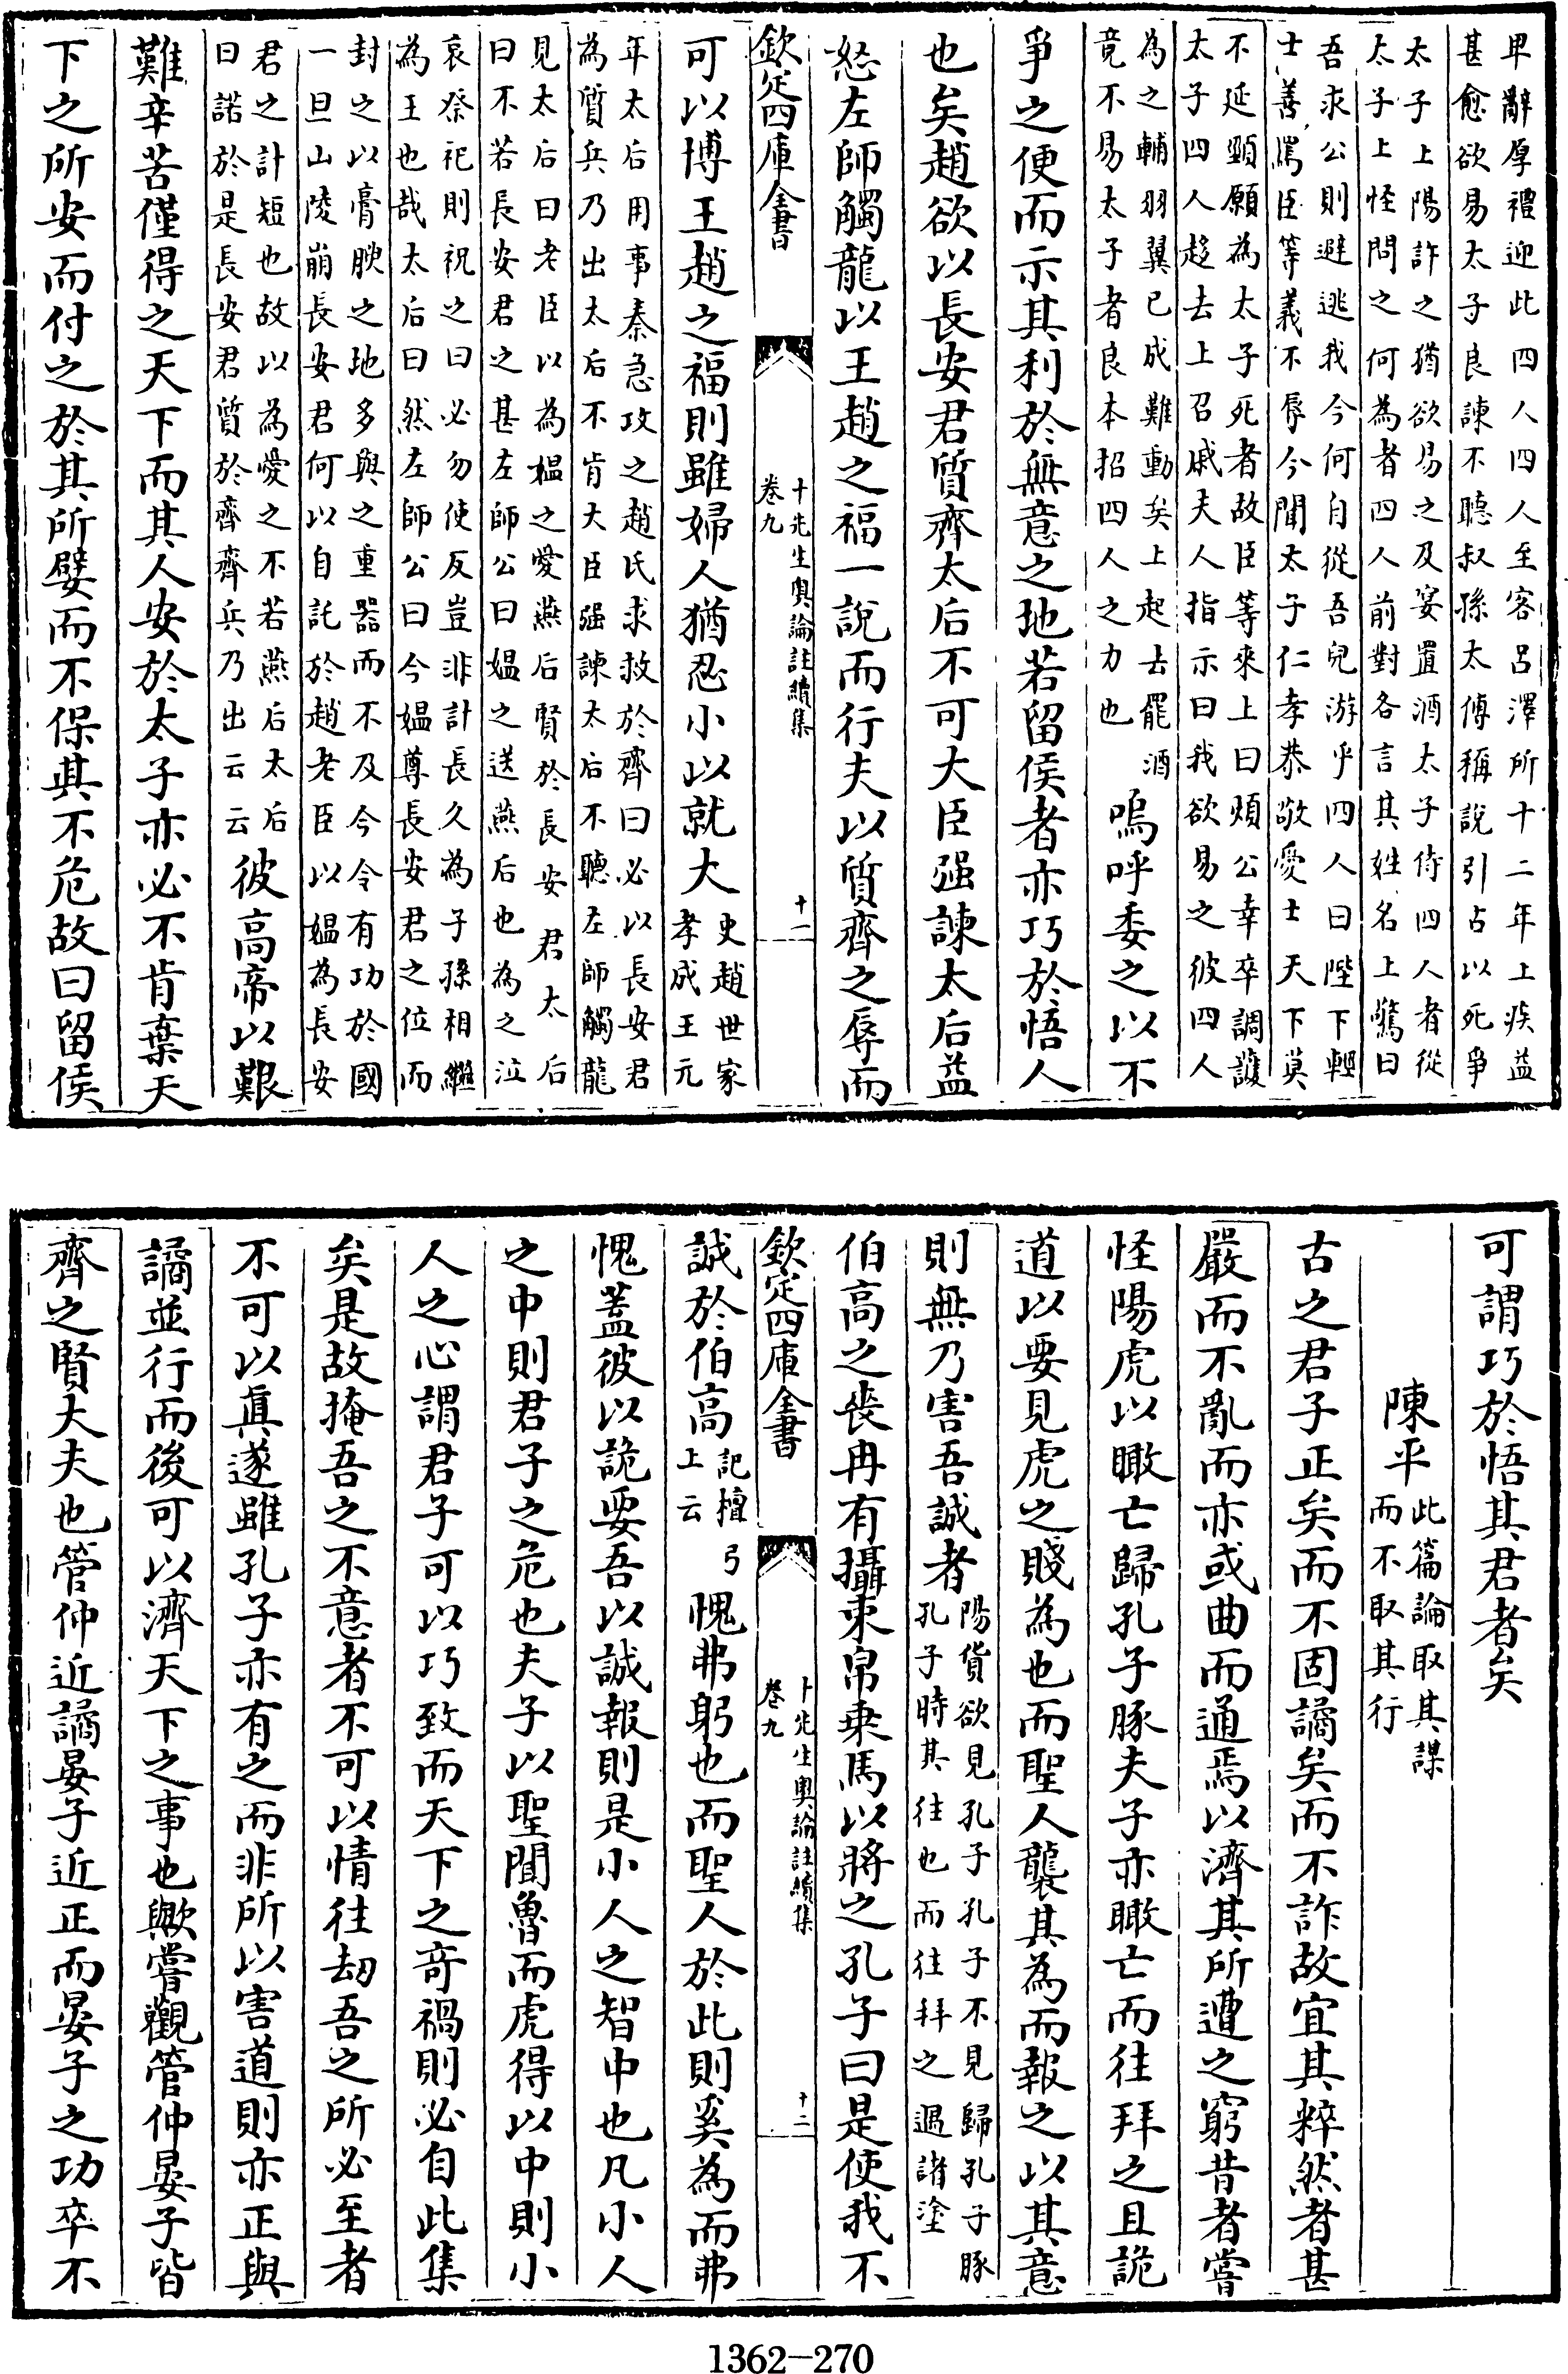 卑辭厚禮迎此四人四人至客呂澤所十二年上疾益
甚愈欲易太子良諫不聽叔孫太傅稱說引古以死爭
太子上陽許之猶欲易之及宴置酒太子侍四人者從
太子上怪問之何為者四人前對各言其姓名上驚曰
吾求公則避逃我今何自從吾兒游乎四人曰陛下輕
士善罵臣等義不辱今聞太子仁孝恭敬愛士天下莫
不延頸願為太子死者故臣等來上曰煩公幸卒調護
太子四人趍去上召戚夫人指示曰我欲易之彼四人
為之輔羽翼已成難動矣上起去罷酒
竟不易太子者良本招四人之力也
嗚呼委之以不
爭之便而示其利於無意之地若留侯者亦巧於悟人
也矣趙欲以長安君質齊太后不可大臣强諫太后益
怒左師觸龍以王趙之福一說而行夫以質齊之辱而
欽定四庫全書
十先生奧論註續集
卷九
十一
可以博王趙之福則雖婦人猶忍小以就大
史趙世家
孝成王元
年太后用事秦急攻之趙氏求救於齊曰必以長安君
為質兵乃出太后不肯大臣强諫太后不聽左師觸龍
見太后曰老臣以為媪之愛燕后賢於長安君太后
曰不若長安君之甚左師公曰媪之送燕后也為之泣
哀祭祀則祝之曰必勿使反豈非計長久為子孫相繼
為王也哉太后曰然左師公曰今媪尊長安君之位而
封之以膏腴之地多與之重器而不及今令有功於國
一旦山陵崩長安君何以自託於趙老臣以媪為長安
君之計短也故以為愛之不若燕后太后
曰諾於是長安君質於齊齊兵乃出云云
彼高帝以艱
難辛苦僅得之天下而其人安於太子亦必不肯棄天
下之所安而付之於其所嬖而不保其不危故曰留侯
可謂巧於悟其君者矣
陳平
此篇論取其謀
而不取其行
古之君子正矣而不固譎矣而不詐故宜其粹然者甚
嚴而不亂而亦或曲而通焉以濟其所遭之窮昔者嘗
怪陽虎以瞰亡歸孔子豚夫子亦瞰亡而往拜之且詭
道以要見虎之賤為也而聖人襲其為而報之以其意
則無乃害吾誠者
陽貨欲見孔子孔子不見歸孔子豚
孔子時其往也而往拜之遇諸塗
伯高之喪冉有攝束帛乘馬以將之孔子曰是使我不
欽定四庫全書
十先生奧論註續集
卷九
十二
誠於伯高
記檀弓
上云
愧弗躬也而聖人於此則奚為而弗
愧蓋彼以詭要吾以誠報則是小人之智中也凡小人
之中則君子之危也夫子以聖聞魯而虎得以中則小
人之心謂君子可以巧致而天下之奇禍則必自此集
矣是故掩吾之不意者不可以情往劫吾之所必至者
不可以真遂雖孔子亦有之而非所以害道則亦正與
譎並行而後可以濟天下之事也歟嘗觀管仲晏子皆
齊之賢大夫也管仲近譎晏子近正而晏子之功卒不
1362-270